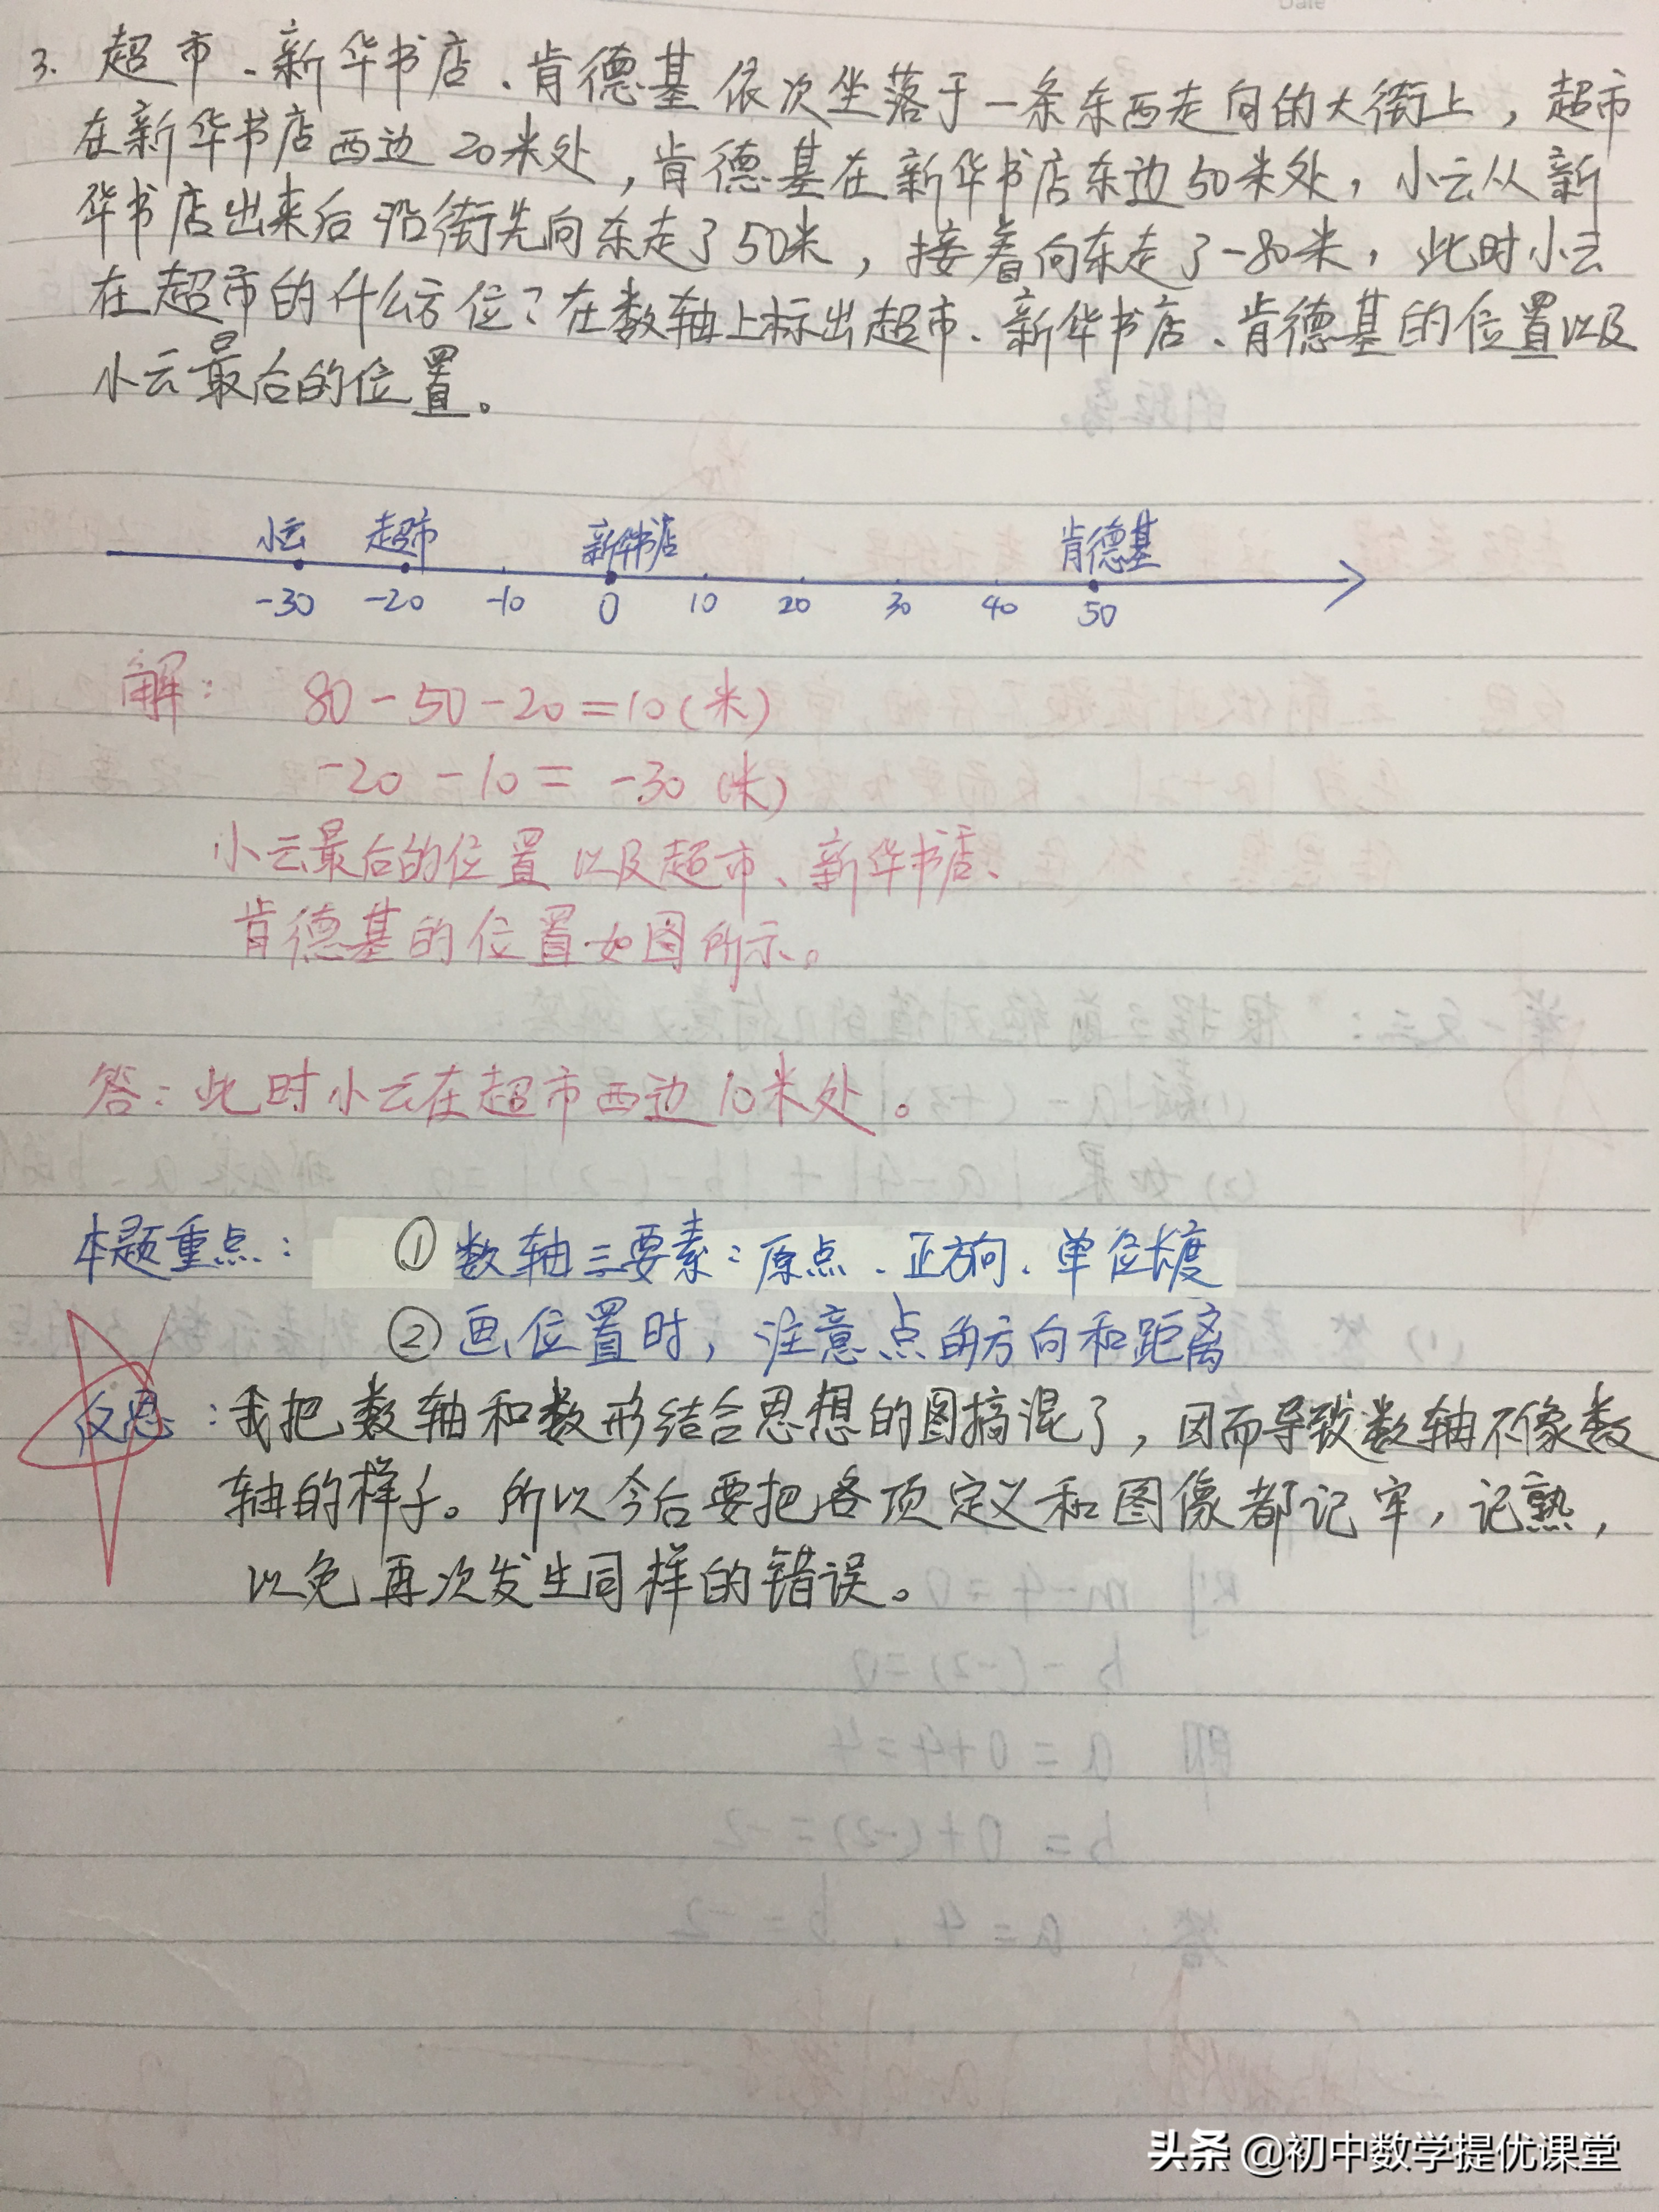 Date
3. 超市、新华书店、肯德基依次坐落于一条东西走向的大街上，超市
在新华书店西边20米处，肯德基在新华书店东边50米处，小云从新
华书店出来后沿街先向东走了50米，接着向东走了-80米，此时小云
在超市的什么方位？在数轴上标出超市、新华书店、肯德基的位置以及
小云最后的位置。
小云 超市 新华书店 肯德基
-30 -20 -10 0 10 20 30 40 50
解： 80-50-20=10(米)
-20-10=-30(米)
小云最后的位置以及超市、新华书店、
肯德基的位置如图所示。
答：此时小云在超市西边10米处。
本题重点： ①数轴三要素：原点、正方向、单位长度
②画位置时，注意点的方向和距离
反思：我把数轴和数形结合思想的图搞混了，因而导致数轴不像数
轴的样子。所以今后要把各项定义和图像都记牢，记熟，
以免再次发生同样的错误。
头条 @初中数学提优课堂